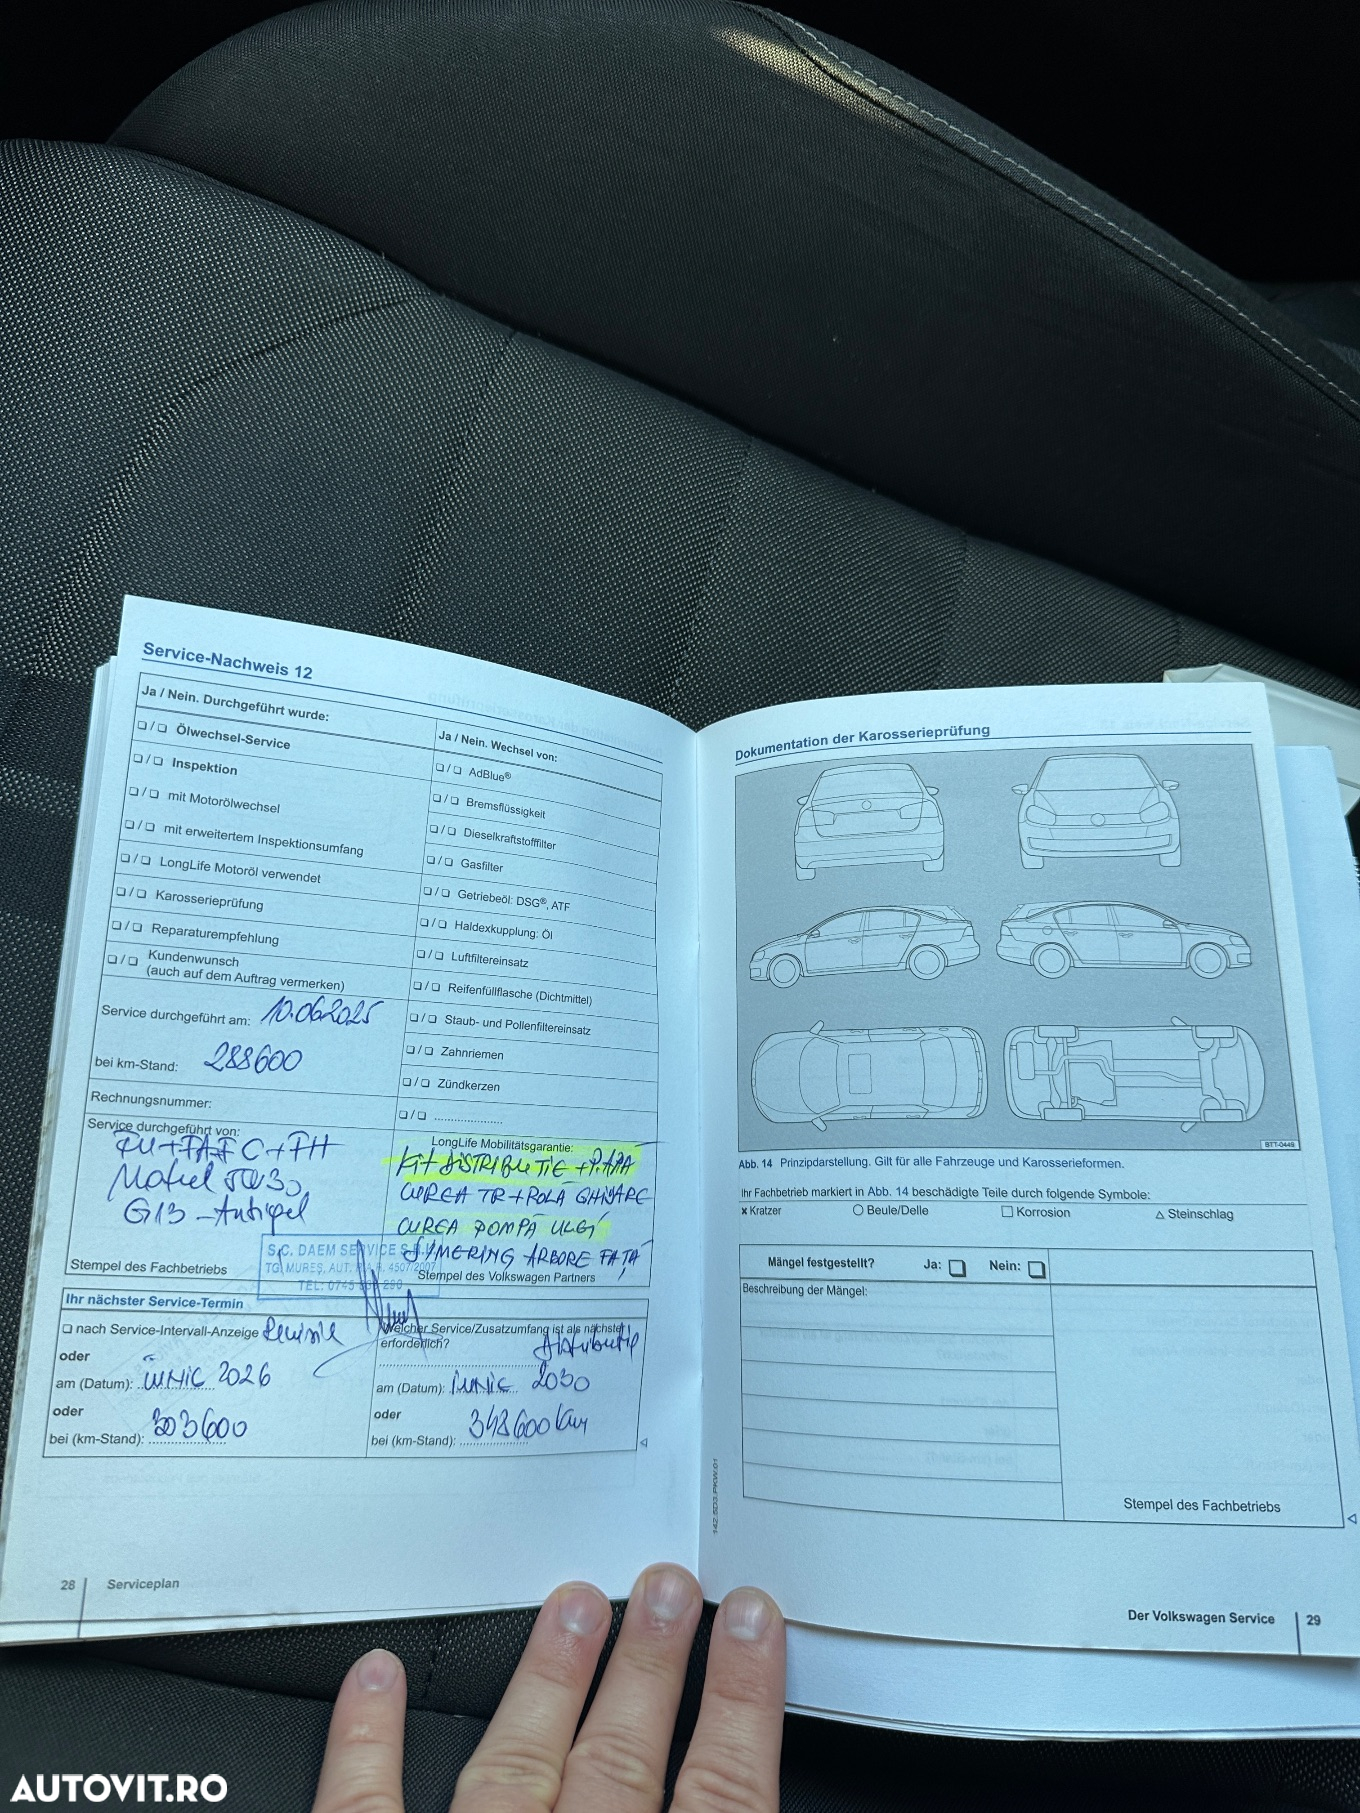 Service-Nachweis 12
Ja / Nein. Durchgeführt wurde:
❑ / ❑ Ölwechsel-Service
❑ / ❑ Inspektion
❑ / ❑ mit Motorölwechsel
❑ / ❑ mit erweitertem Inspektionsumfang
❑ / ❑ LongLife Motoröl verwendet
❑ / ❑ Karosserieprüfung
❑ / ❑ Reparaturempfehlung
❑ / ❑ Kundenwunsch
(auch auf dem Auftrag vermerken)
Service durchgeführt am: 10.06.2025
bei km-Stand: 288600
Rechnungsnummer:
Service durchgeführt von:
G13 - Antigel
S.C. DAEM SERVICE S.R.L.
TG. MUREȘ, AUT. R.A.R. 4507/2007
Stempel des Fachbetriebs
Ja / Nein. Wechsel von:
❑ / ❑ AdBlue®
❑ / ❑ Bremsflüssigkeit
❑ / ❑ Dieselkraftstofffilter
❑ / ❑ Gasfilter
❑ / ❑ Getriebeöl: DSG®, ATF
❑ / ❑ Haldexkupplung: Öl
❑ / ❑ Luftfiltereinsatz
❑ / ❑ Reifenfüllflasche (Dichtmittel)
❑ / ❑ Staub- und Pollenfiltereinsatz
❑ / ❑ Zahnriemen
❑ / ❑ Zündkerzen
❑ / ❑ ......................
LongLife Mobilitätsgarantie:
KIT DISTRIBUTIE + P. APA
CUREA TR + ROLA GHIDARE
CUREA POMPĂ ULEI
SIMERING ARBORE FATĂ
Stempel des Volkswagen Partners
Ihr nächster Service-Termin
❑ nach Service-Intervall-Anzeige Revizie
oder
am (Datum): iunie 2026
oder
bei (km-Stand): 303600
Welcher Service/Zusatzumfang ist als nächster
erforderlich? Distributie
am (Datum): iunie 2030
oder
bei (km-Stand): 348600 km
28 Serviceplan
Dokumentation der Karosserieprüfung
BTT-0448
Abb. 14 Prinzipdarstellung. Gilt für alle Fahrzeuge und Karosserieformen.
Ihr Fachbetrieb markiert in Abb. 14 beschädigte Teile durch folgende Symbole:
x Kratzer ○ Beule/Delle □ Korrosion △ Steinschlag
Mängel festgestellt? Ja: ❑ Nein: ❑
Beschreibung der Mängel:
Stempel des Fachbetriebs
Der Volkswagen Service 29
AUTOVIT.RO